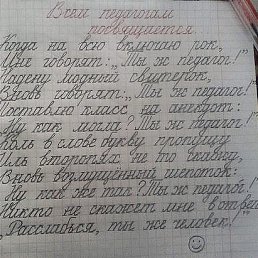 Всем педагогам
посвящается
Когда на всю включаю рок,
Мне говорят: „Ты ж педагог!"
Надену модный свитерок,
Вновь говорят: „Ты ж педагог!"
Поставлю класс на анекдот:
„Ну как могла? Ты ж педагог!"
Коль в слове букву пропущу
Иль второпях не то скажу,
Вновь возмущённый шепоток:
„Ну как же так? Ты ж педагог!"
Никто не скажет мне в ответ:
„Расслабься, ты же человек!"